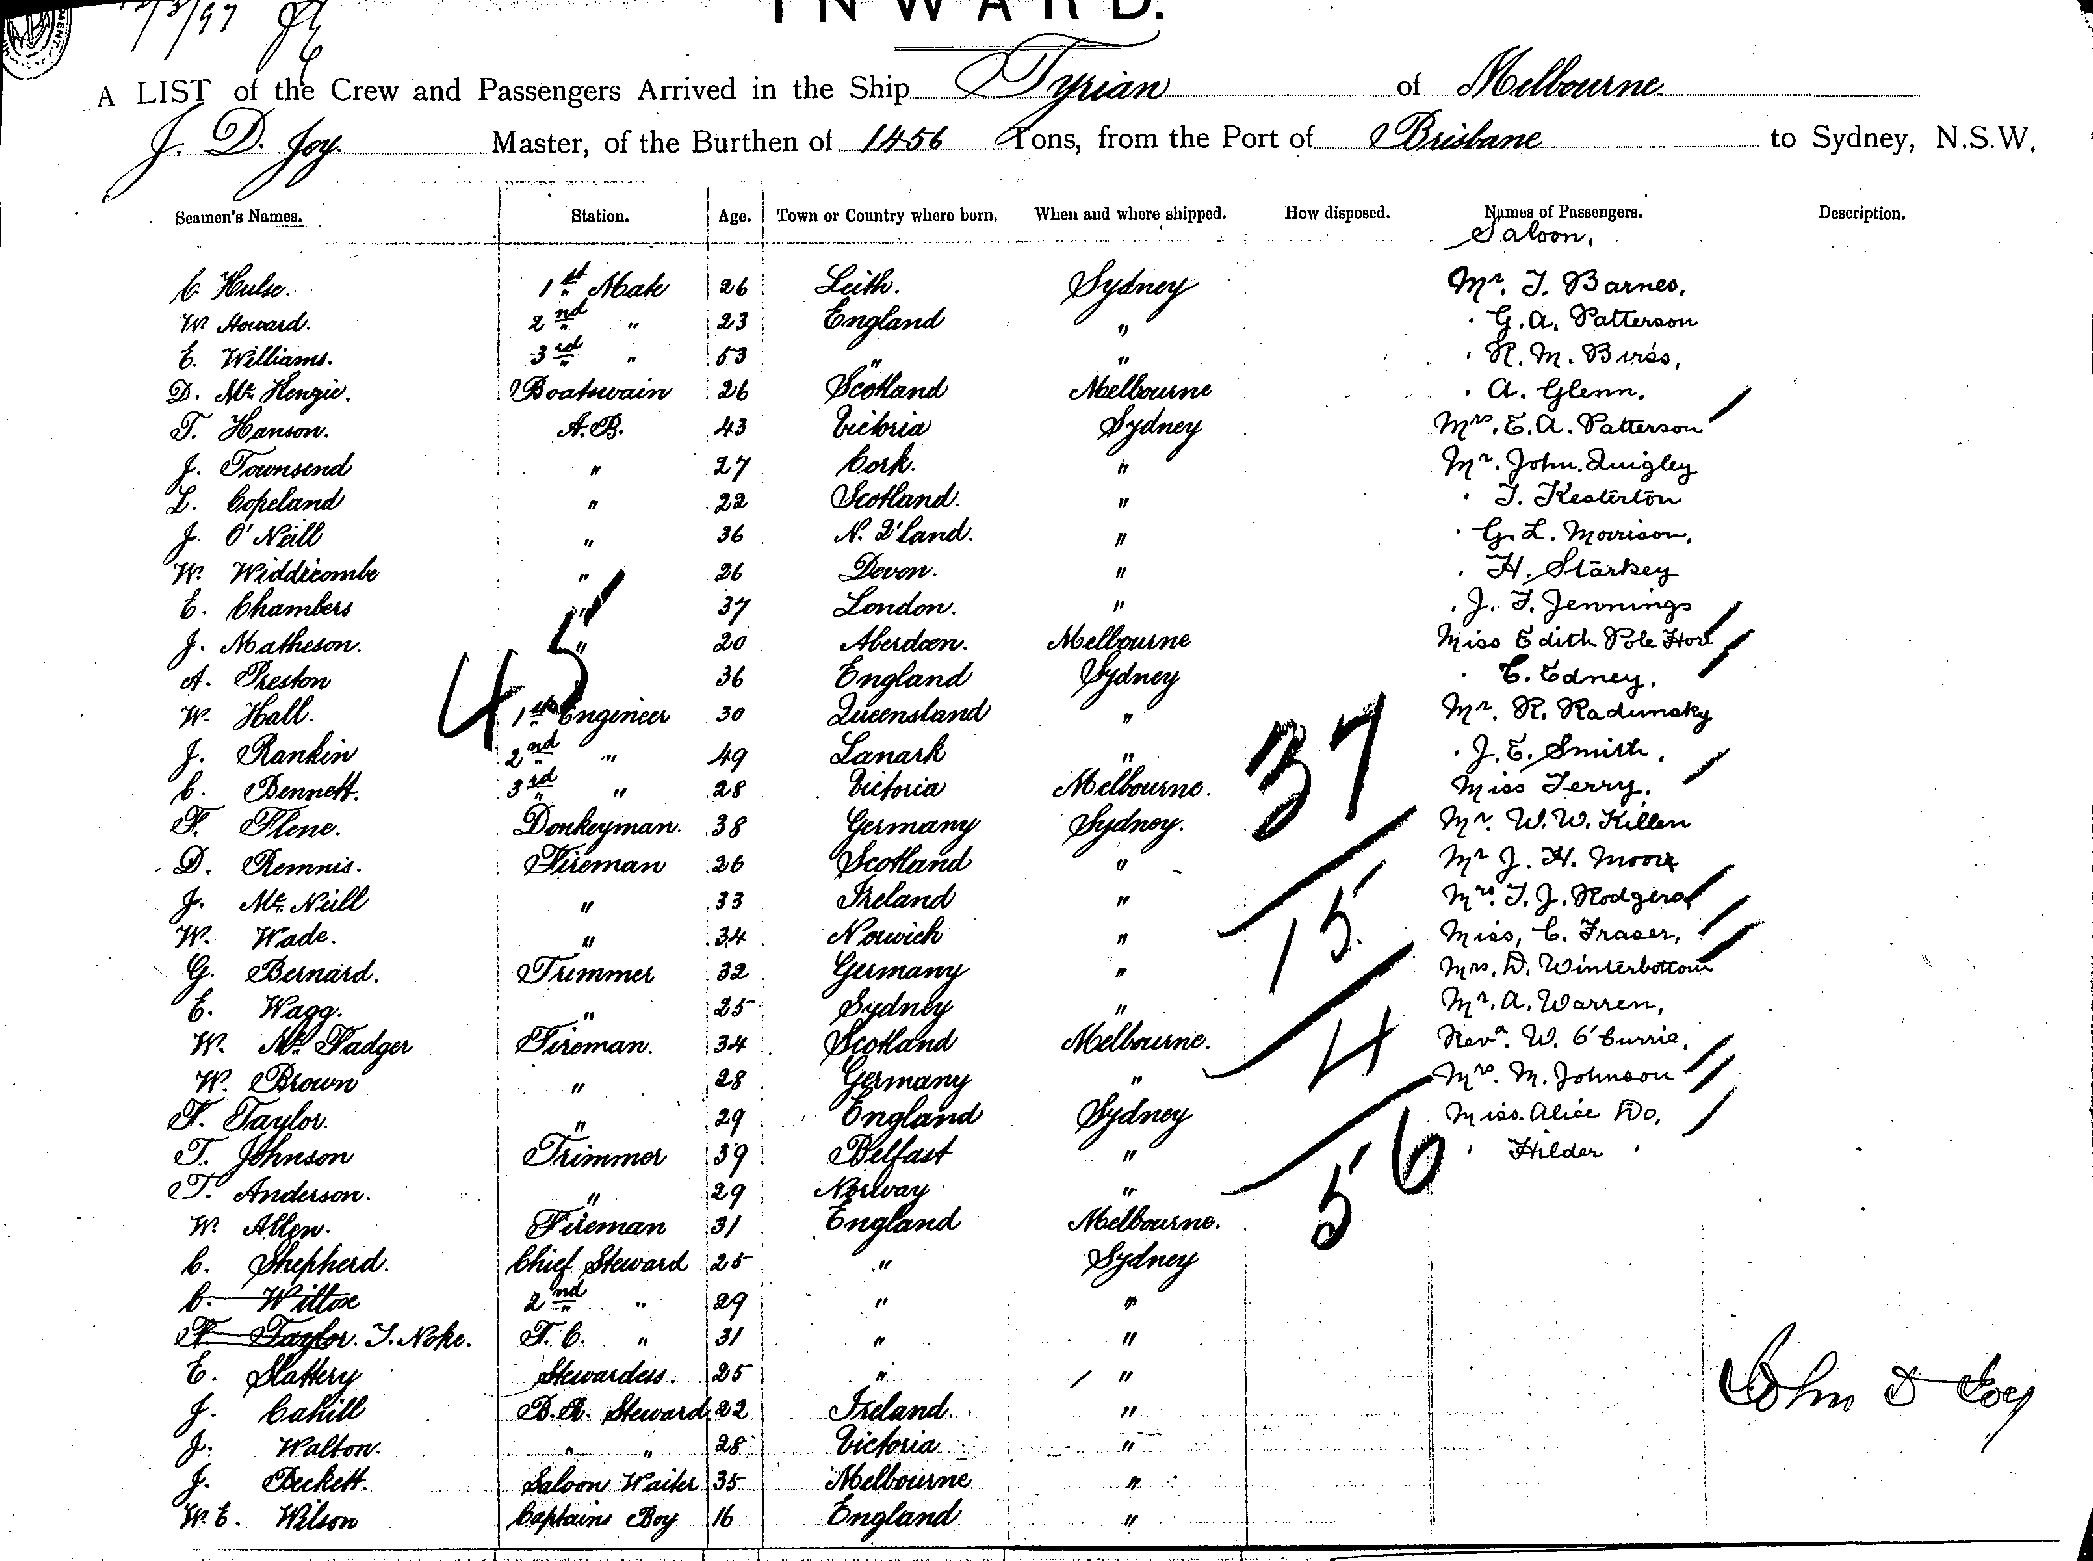 /3/97
INWARD.
A LIST of the Crew and Passengers Arrived in the Ship Tyrian of Melbourne
J. D. Joy. Master, of the Burthen of 1456 Tons, from the Port of Brisbane to Sydney, N.S.W.
Seamen's Names. Station. Age. Town or Country where born. When and where shipped. How disposed. Names of Passengers. Description.
Saloon.
C Hulse. 1st Mate 26 Leith. Sydney Mr. T. Barnes.
W Howard. 2nd " 23 England " . G. A. Patterson
E. Williams. 3rd " 53 " " . R. M. Birss.
D. McKenzie. Boatswain 26 Scotland Melbourne . A. Glenn.
T. Hanson. A.B. 43 Victoria Sydney Mrs. E. A. Patterson
J. Townsend " 27 Cork. " Mr. John Quigley
L. Copeland " 22 Scotland. " . T. Kesterton
J. O'Neill " 36 N. Z'Land. " . G. L. Morrison.
W. Widdicombe " 26 Devon. " . H. Starkey
E. Chambers " 37 London. " . J. T. Jennings
J. Matheson. " 20 Aberdeen. Melbourne Miss Edith Pole
A. Preston 36 England Sydney . C. Edney.
45
W. Hall. 1st Engineer 30 Queensland " Mr. R. Radumsky
J. Rankin 2nd " 49 Lanark " . J. E. Smith.
37
C. Bennett. 3rd " 28 Victoria Melbourne. Miss Terry.
F. Flene. Donkeyman. 38 Germany Sydney. Mr. W. W. Killen
D. Remnis. Fireman 26 Scotland " Mr J. H. Moore
J. McNeill " 33 Ireland " Mrs. T. J. Rodgers
15
W. Wade. " 34 Norwich " Miss, C. Fraser,
G. Bernard. Trimmer 32 Germany " Mrs. D. Winterbottom
E. Wagg. " 25 Sydney " Mr. A. Warren,
W. Mc Fadger Fireman. 34 Scotland Melbourne. Revd. W. O'Currie,
4
W. Brown " 28 Germany " Mrs. M. Johnson
F. Taylor. " 29 England Sydney Miss. Alice Do.
T. Johnson Trimmer 39 Belfast " " Hilder "
56
T. Anderson. " 29 Norway "
W. Allen. Fireman 31 England Melbourne.
C. Shepherd. Chief Steward 25 " Sydney
C. Wiltose 2nd " 29 " "
F Taylor. T. Noke. F.C. " 31 " "
E. Slattery Stewardess. 25 " "
J. Cahill B.R. Steward 22 Ireland. "
John D Joy
J. Walton. " " 28 Victoria "
J. Beckett. Saloon Waiter 35 Melbourne "
W. E. Wilson Captains Boy 16 England "